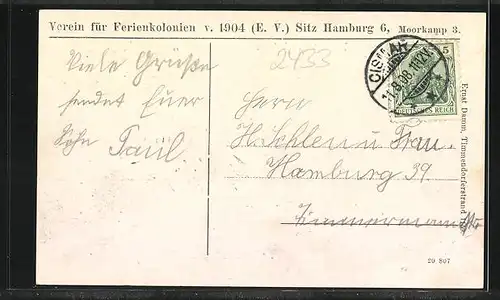 Verein für Ferienkolonien v. 1904 (E. V.) Sitz Hamburg 6, Moorkamp 3.
2433
Viele Grüße
sendet Euer
Sohn Paul
CISMAR
5
DEUTSCHES REICH
Herrn
u Frau.
Hamburg 39.
Ernst Damm, Timmendorferstrand
29 807